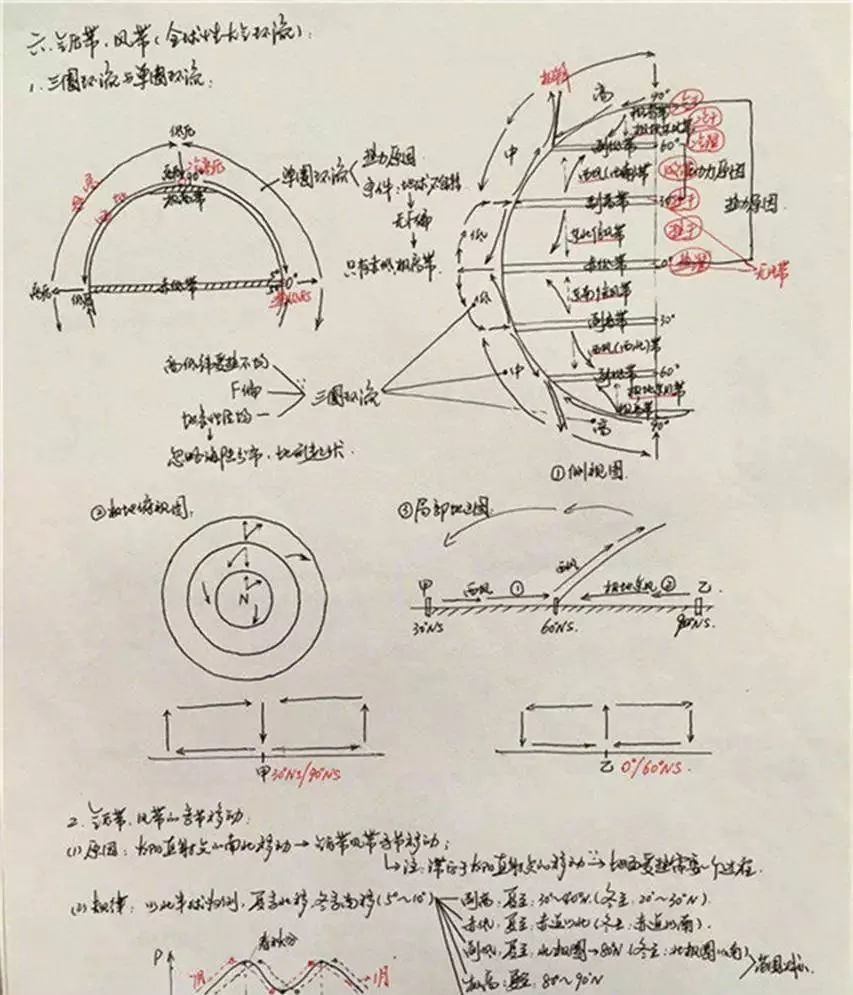 六、气压带、风带(全球性大气环流):
1.三圈环流与单圈环流:
低压
极地 冷高压
90°
极高带
单圈环流
热力原因
条件:地球不自转
无F偏
只有赤低极高带.
高压
低压
赤低带
0°
极锋
高
90°
极高带
极地东风带
副极低带 60°
中
西风(西南)带
副高带 30°
低
东北信风带
赤低带 0°
低
东南信风带
副高带 30°
中
西风(西北)带
60°
极地东风带
极高带
高
90°
冷干
冷干
冷湿
热干
热湿
动力原因
热力原因
无风带
高低纬受热不均
F偏
地表性质均一
忽略海陆分布、地形起伏
三圈环流
①侧视图.
②极地俯视图.
N
③局部地区图.
甲 西风 ① 西风 极地东风 ② 乙.
30°NS 60°NS. 90°NS.
甲 30°NS/90°NS
乙 0°/60°NS.
2.气压带、风带的季节移动:
(1)原因:太阳直射点的南北移动→气压带风带季节移动;
注:滞后于太阳直射点的移动 ∵→地面受热需要一个过程.
(2)规律:以北半球为例,夏季北移,冬季南移(5°~10°)
副高:夏至:30°~40°N.(冬至:20°~30°N)
赤低:夏至:赤道以北(冬至:赤道以南).
副低:夏至:北极圈→80°N(冬至:北极圈以南)
极高:夏至:80°~90°N
范围对称
P
春秋分
7月
1月